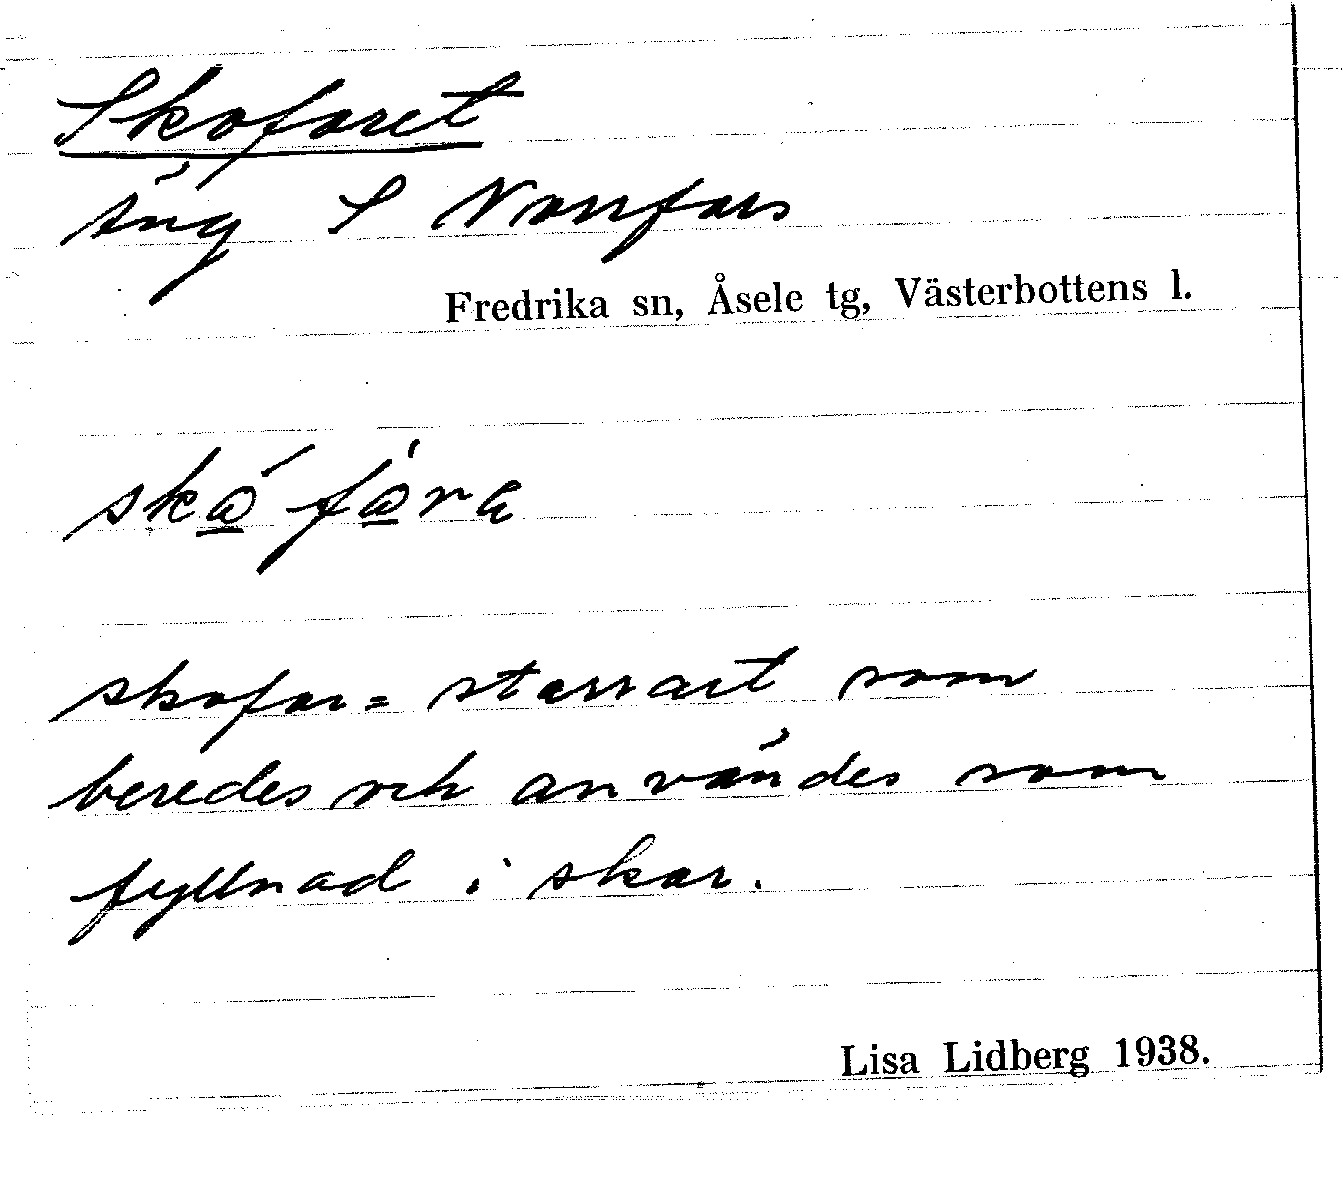 Skoforet
äng S Norrfors
Fredrika sn, Åsele tg, Västerbottens l.
skofor = starrart som
beredes och användes som
fyllnad i skor.
Lisa Lidberg 1938.